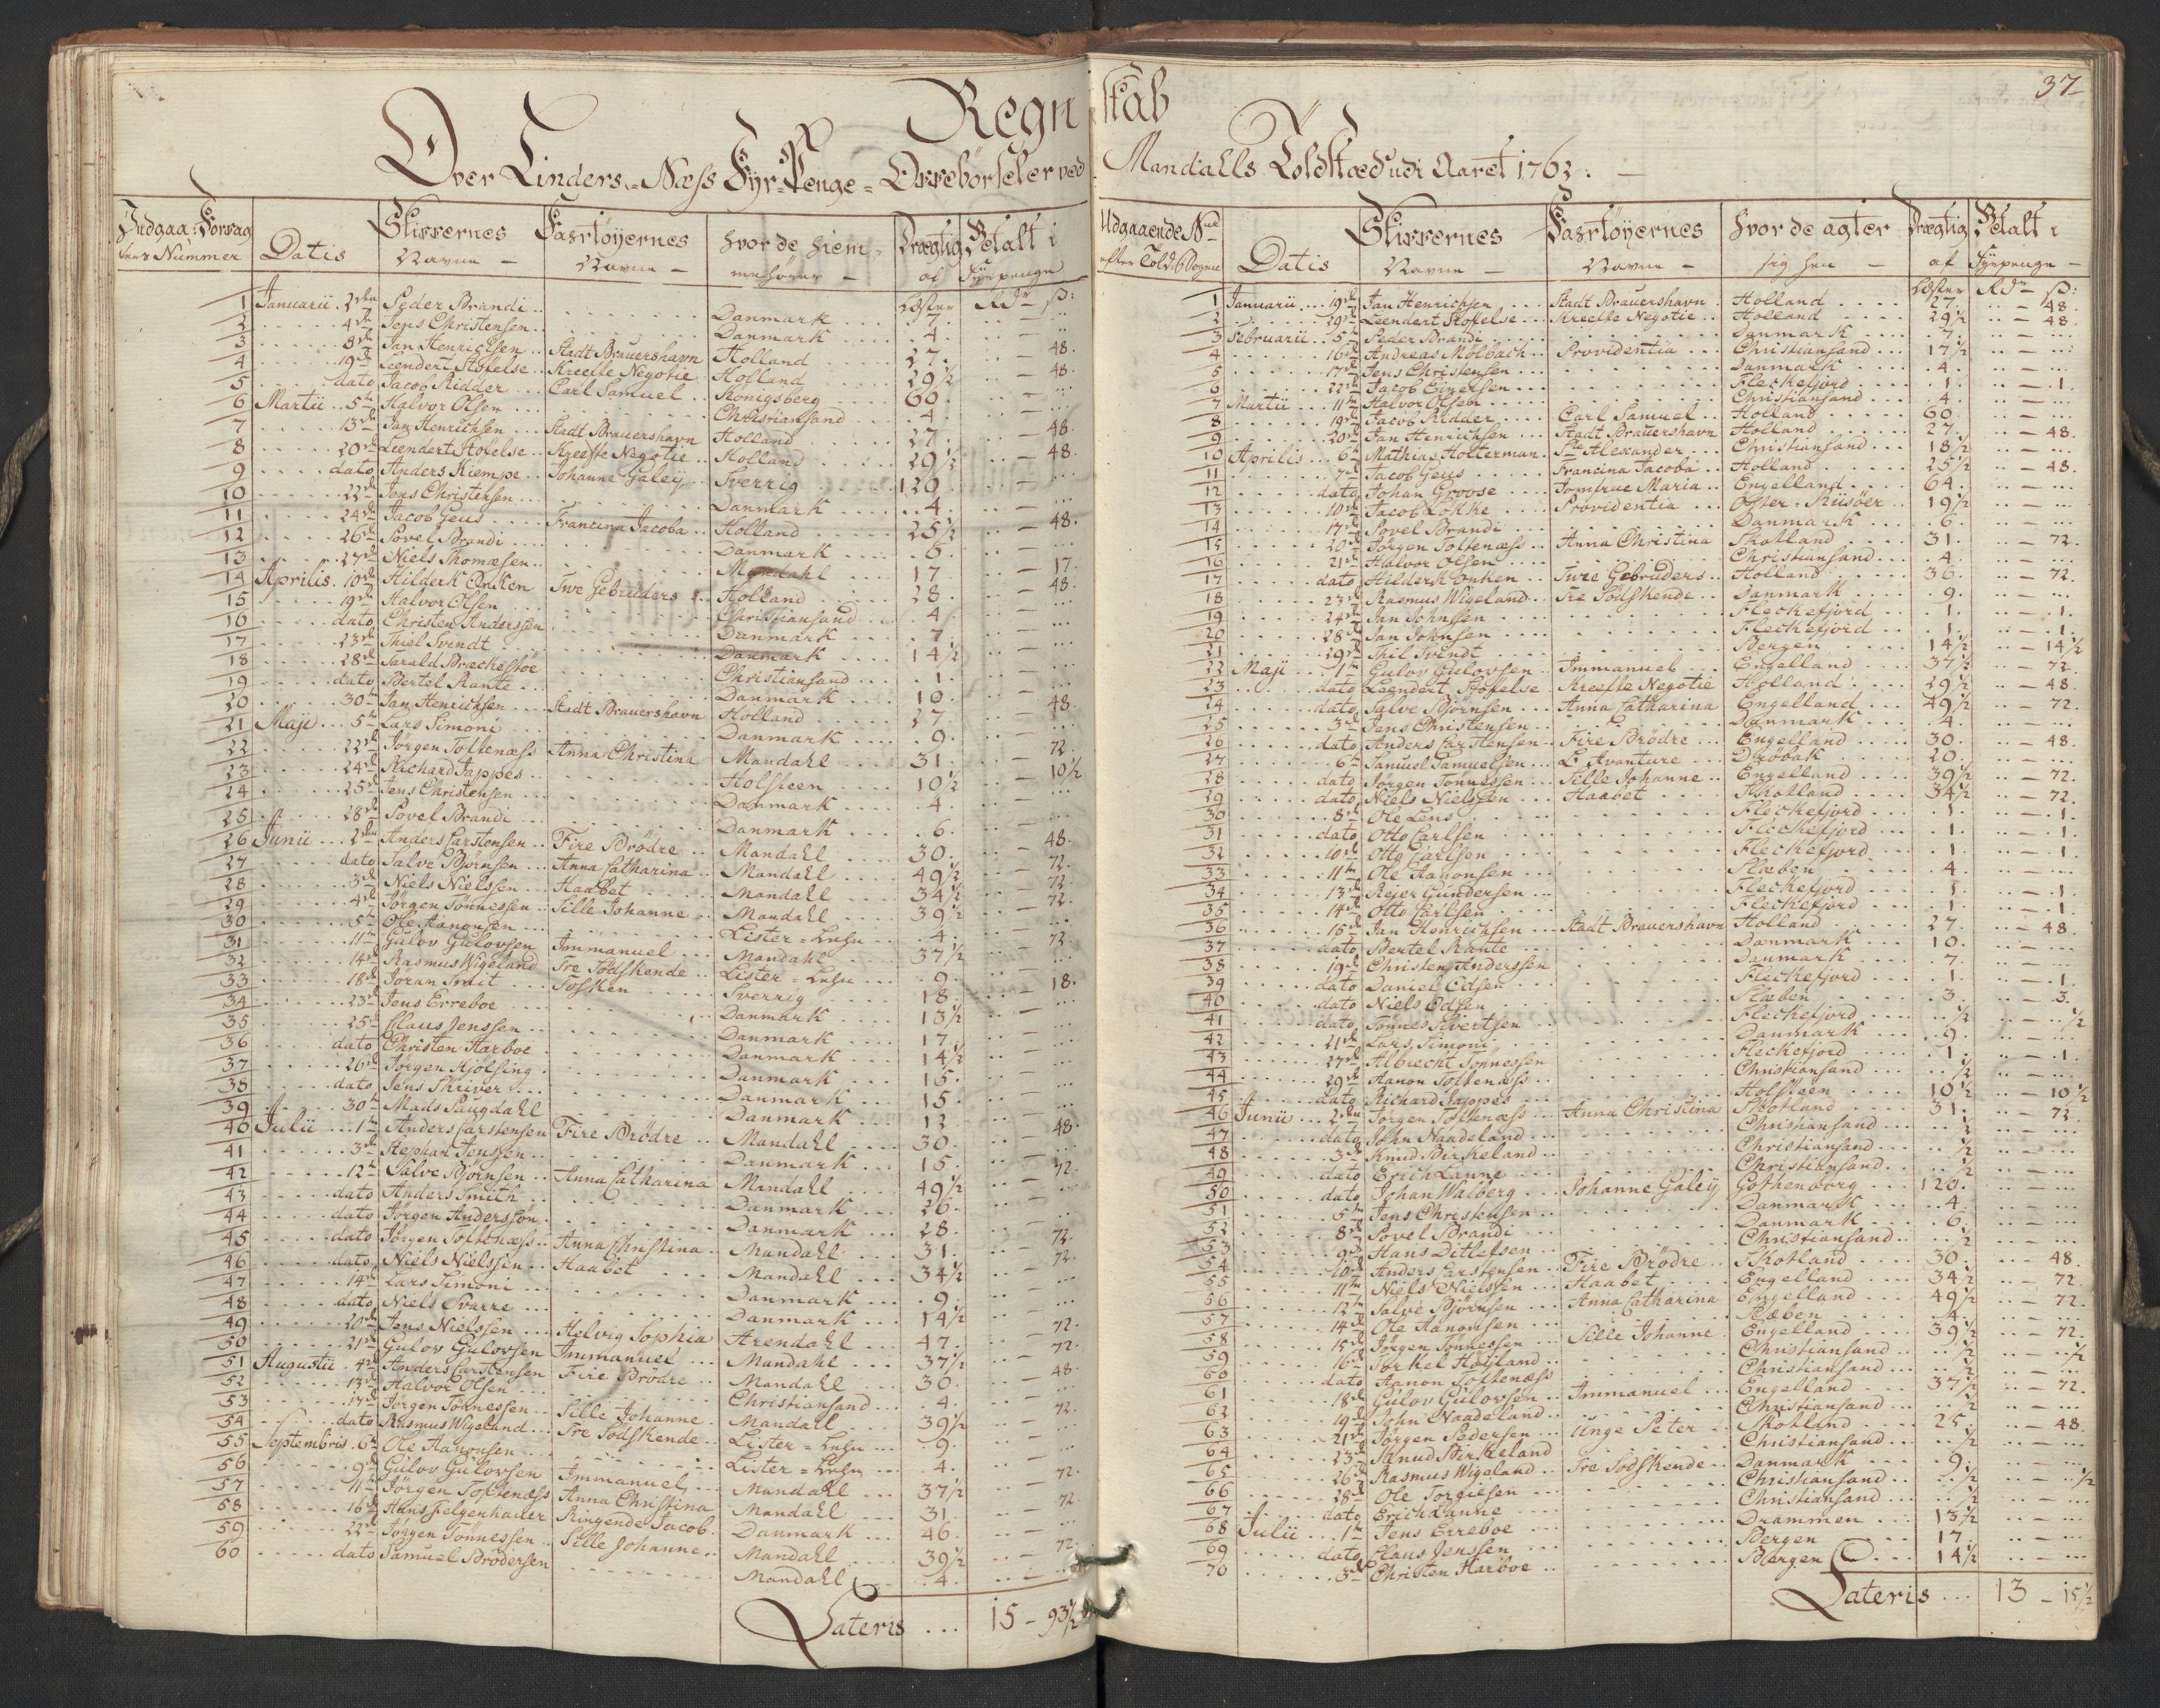 37
Regnskab
Over Linders-Næss Fyr-Penge-Oppebørseler ved Mandalls Toldsted udi Aaret 1763.
Datis Skippernes Navne Fartøyernes Navne hvor de hiemmehører Drægtig af Læster Betalt i Fyrpenge Rdr ß:
1 Januarii 2den Peder Brandi Danmark 7.
2 4de Jens Christensen Danmark 4.
3 8de Jan Henrichsen Stadt Brauershavn Holland 27. 48.
4 19de Leendert Stofelse Kreefte Negotie Holland 29½ 48.
5 dato Jacob Ridder Carl Samuel Konigsberg 60.
6 Martii 5te Halvor Olsen Christiansand 4.
7 13de Jan Henrichsen Stadt Brauershavn Holland 27 48.
8 20de Leendert Stofelse Kreefte Negotie Holland 29½ 48.
9 dato Anders Kiempe Johanne Galey Sverrig 120
10 22de Jens Christensen Danmark 4.
11 24de Jacob Geus Francina Jacoba Holland 25½ 48.
12 26de Povel Brandi Danmark 6.
13 27de Niels Thomæsen Mandahl 17 17.
14 Aprilis 10de Hilderk Onken Twe Gebruders Holland 28. 48.
15 19de Halvor Olsen Christiansand 4
16 dato Christen Anderssen Danmark 7.
17 23de Thiel Svendt Danmark 14½
18 28de Tarald Bræckestoe Christiansand 1.
19 dato Bertel Rante Danmark 10.
20 30te Jan Henrichsen Stadt Brauershavn Holland 27. 48.
21 Maji 5te Lars Simoni Danmark 9.
22 22de Jørgen Toftenæss Anna Christina Mandahl 31. 72.
23 24de Richard Jappes Holsteen 10½ 10½
24 25de Jens Christensen Danmark 4.
25 28de Povel Brandi Danmark 6.
26 Junii 2den Anders Carstensen Fire Brødre Mandahl 30. 48.
27 dato Salve Bjørnsen Anna Catharina Mandahl 49½ 72.
28 3de Niels Nielssen Haabet Mandahl 34½ 72.
29 4de Jørgen Tønnessen Sille Johanne Mandahl 39½ 72.
30 5te Ole Aanonsen Lister 4.
31 11te Gulov Gulovsen Immanuel Mandahl 37½ 72.
32 14de Rasmus Wigeland Tre Södskende Lister 9.
33 18de Jøran Smit Sverrig 18. 18.
34 23de Jens Erreboe Danmark 13½
35 25de Claus Jenssen Danmark 17.
36 dato Christen Harboe Danmark 14½
37 26de Jørgen Kjølsing Danmark 15.
38 dato Jens Skriver Danmark 15.
39 30te Mads Saugdahl Danmark 12
40 Julii 1te Anders Carstensen Fire Brødre Mandahl 30. 48.
41 3de Stephan Jenssen Danmark 15.
42 12te Salve Bjørnsen Anna Catharina Mandahl 49½ 72.
43 dato Anders Smith Danmark 26.
44 dato Jørgen Anderssøn Danmark 28.
45 dato Jørgen Toftenæss Anna Christina Mandahl 31. 72.
46 dato Niels Nielssen Haabet Mandahl 34½ 72.
47 14de Lars Simoni Danmark 9.
48 dato Niels Svarre Danmark 14½
49 20de Jens Nielssen Helvig Sophia Arendahl 47. 72.
50 21de Gulov Gulovsen Immanuel Mandahl 37½ 72.
51 Augustii 4de Anders Carstensen Fire Brødre Mandahl 30. 48.
52 13de Halvor Olsen Christiansand 4.
53 17de Jørgen Tønnessen Sille Johanne Mandahl 39½ 72.
54 dato Rasmus Wigeland Tre Södskende Lister 9.
55 Septembris 6te Ole Aanonsen Lister 4.
56 9de Gulov Gulovsen Immanuel Mandahl 37½ 72.
57 11te Jørgen Toftenæss Anna Christina Mandahl 31. 72.
58 16de Hans Felgenhauer Ringende Jacob Danmark 46.
59 22de Jørgen Tønnessen Sille Johanne Mandahl 39½ 72.
60 dato Samuel Brødersen Mandahl 4.
Lateris 15 - 93½
Udgaaende No efter Told-Bogen Datis Skippernes Navne Fartøyernes Navne hvor de agter sig hen Drægtig af Læster Betalt i Fyrpenge Rdr ß:
1 Januarii 19de Jan Henrichsen Stadt Brauershavn Holland 27. 48
2 29de Leendert Stofelse Kreefte Negotie Holland 29½ 48.
3 Februarii 5te Peder Brandi Danmark 7.
4 16de Andreas Mölbach Providentia Christiansand 17½
5 17de Jens Christensen Danmark 4.
6 22de Jacob Einersen Fleckefjord 1. 1.
7 Martii 11te Halvor Olsen Christiansand 4.
8 19de Jacob Ridder Carl Samuel Holland 60.
9 20de Jan Henrichsen Stadt Brauershavn Holland 27. 48.
10 Aprilis 6te Mathias Holterman St Alexander Christiansand 18½
11 7de Jacob Geus Francina Jacoba Holland 25½ 48.
12 dato Johan Groose Jomfrue Maria Engelland 64.
13 10de Jacob Lokke Providentia Öster-Riisöer 19½
14 17de Povel Brandi Danmark 6.
15 20de Jørgen Toftenæss Anna Christina Skotland 31. 72.
16 21de Halvor Olsen Christiansand 4.
17 dato Hilderk Onken Twee Gebruders Holland 36. 72.
18 23de Rasmus Wigeland Tre Södskende Danmark 9.
19 24de Jan Johnssen Fleckefjord 1. 1.
20 28de Jan Johnsen Fleckefjord 1. 1.
21 29de Thil Svendt Bergen 14½ 14½
22 Maji 1te Gulov Gulovsen Immanuel Engelland 37½ 72.
23 dato Leendert Stofelse Kreefte Negotie Holland 29½ 48.
24 dato Salve Bjørnsen Anna Catharina Engelland 49½ 72.
25 3de Jens Christensen Danmark 4.
26 dato Anders Carstensen Fire Brödre Engelland 30. 48.
27 6te Samuel Samuelsen L'Avanture Drøbak 20.
28 dato Jørgen Tønnessen Sille Johanne Engelland 39½ 72.
29 dato Niels Nielssen Haabet Skotland 34½ 72.
30 8de Ole Lens Fleckefjord 1. 1.
31 dato Otto Carlsen Fleckefjord 1. 1.
32 10de Otto Carlsen Fleckefjord 1. 1.
33 11te Ole Aanonsen Slæben 4.
34 13de Reier Gundersen Fleckefjord 1. 1
35 14de Otto Carlsen Fleckefjord 1. 1.
36 15de Jan Henrichsen Stadt Brauershavn Holland 27 48.
37 dato Bertel Rante Danmark 10.
38 19de Christen Anderssen Danmark 7.
39 dato Daniel Edsen Fleckefjord 1. 1.
40 dato Niels Edsen Slæben 3. 3.
41 dato Tønnes Sivertsen Fleckefjord ½ ½
42 21de Lars Simoni Danmark 9.
43 27de Albrecht Tønnessen Fleckefjord 1. 1.
44 29de Aanon Toftenæss Christiansand ½
45 dato Richard Jappes Holsteen 10½ 10½
46 Junii 2den Jørgen Toftenæss Anna Christina Skotland 31. 72.
47 dato John Naadeland Christiansand ½
48 3de Knud Birkeland Christiansand ½
49 dato Erich Lanne Christiansand ½
50 dato Johan Walberg Johanne Galeÿ Gothenborg 120.
51 5te Jens Christensen Danmark 4.
52 8de Povel Brandi Danmark 6.
53 9de Hans Ditlefsen Christiansand ½
54 10de Anders Carstensen Fire Brödre Skotland 30. 48.
55 11te Niels Nielssen Haabet Engelland 34½ 72.
56 12te Salve Bjørnsen Anna Catharina Engelland 49½ 72.
57 14de Ole Aanonsen Slæben 4.
58 15de Jørgen Tønnessen Sille Johanne Engelland 39½ 72.
59 16de Torkel Høyland Christiansand ½ ½
60 dato Aanon Toftenæss Christiansand ½
61 18de Gulov Gulovsen Immanuel Engelland 37½ 72.
62 19de John Naadeland Christiansand ½
63 21de Jørgen Pedersen Unge Peter Skotland 25. 48.
64 23de Knud Birkeland Christiansand ½
65 26de Rasmus Wigeland Tre Södskende Danmark 9.
66 28de Ole Torgiesen Christiansand ½ ½
67 dato Erich Lanne Christiansand ½
68 Julii 1te Jens Erreboe Drammen 13½
69 dato Claus Jenssen Bergen 17.
70 3de Christen Harboe Bergen 14½
Lateris 13 - 15½